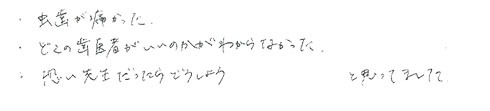 ・虫歯が痛かった.
・どこの歯医者がいいのかがわからなかった.
・恐い先生だったらどうしよう と思ってました